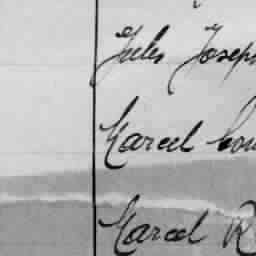 Jules Joseph
Marcel Lou
Marcel R